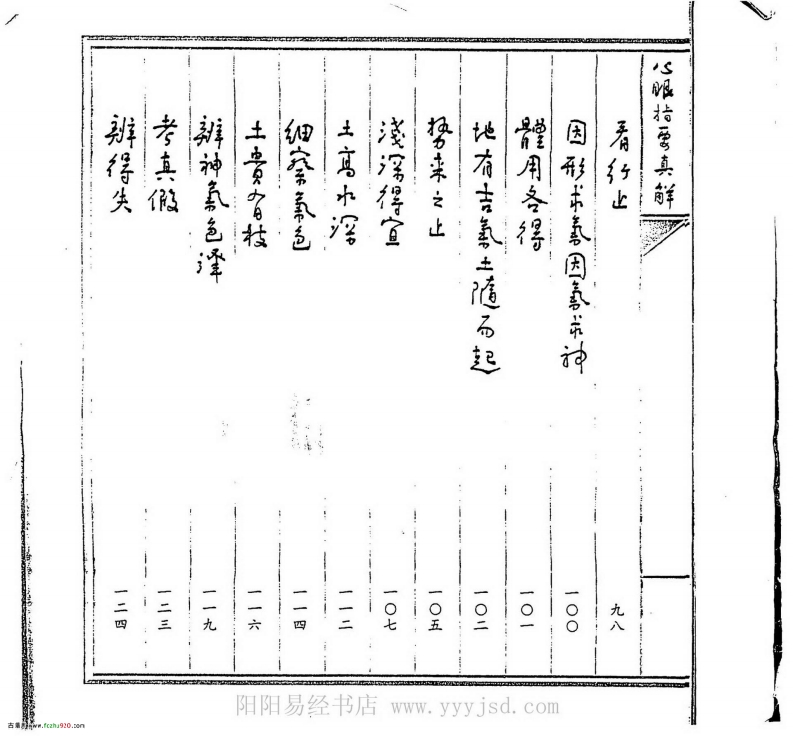 心眼指要真解
看行止 九八
因形求氣因氣求神 一〇〇
體用各得 一〇一
地有吉氣土隨而起 一〇二
势来之止 一〇五
淺深得宜 一〇七
土高水深 一一二
細察氣色 一一四
土貴有枝 一一六
辨神氣色澤 一一九
考真假 一二三
辨得失 一二四
阳阳易经书店 www.yyyjsd.com
www.fczhu920.com